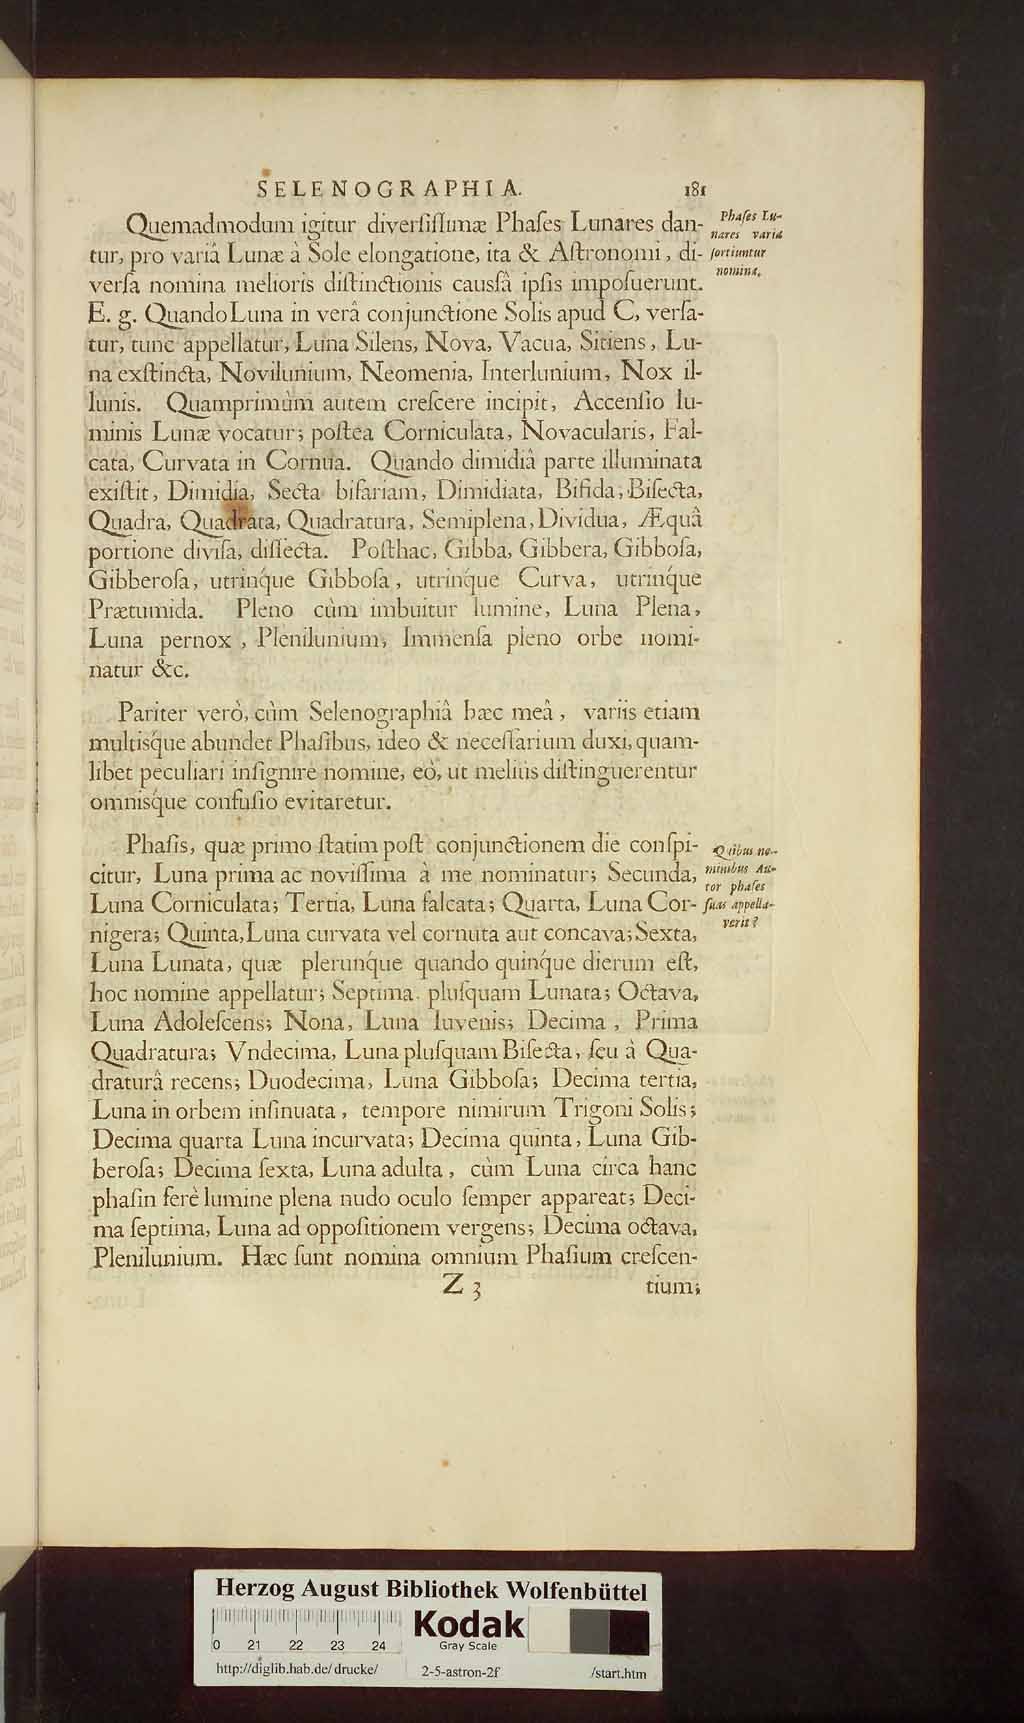 SELENOGRAPHIA. 181
Quemadmodum igitur diverſiſſimæ Phaſes Lunares dan-
tur, pro variâ Lunæ à Sole elongatione, ita & Aſtronomi, di-
verſa nomina melioris diſtinctionis causſâ ipſis impoſuerunt.
E. g. Quando Luna in verâ conjunctione Solis apud C, verſa-
tur, tunc appellatur, Luna Silens, Nova, Vacua, Sitiens, Lu-
na exſtincta, Novilunium, Neomenia, Interlunium, Nox il-
lunis. Quamprimùm autem creſcere incipit, Accenſio lu-
minis Lunæ vocatur; poſtea Corniculata, Novacularis, Fal-
cata, Curvata in Cornua. Quando dimidiâ parte illuminata
exiſtit, Dimidia, Secta bifariam, Dimidiata, Bifida, Biſecta,
Quadra, Quadrata, Quadratura, Semiplena, Dividua, Æquâ
portione diviſa, diſſecta. Poſthac, Gibba, Gibbera, Gibboſa,
Gibberoſa, utrinq́ue Gibboſa, utrinq́ue Curva, utrinq́ue
Prætumida. Pleno cùm imbuitur lumine, Luna Plena,
Luna pernox, Plenilunium, Immenſa pleno orbe nomi-
natur &c.
Phaſes Lu-
nares varia
ſortiuntur
nomina.
Pariter verò, cùm Selenographiâ hæc meâ, variis etiam
multisq́ue abundet Phaſibus, ideo & neceſſarium duxi, quam-
libet peculiari inſignire nomine, eò, ut meliùs diſtinguerentur
omnisq́ue confuſio evitaretur.
Phaſis, quæ primo ſtatim poſt conjunctionem die conſpi-
citur, Luna prima ac noviſſima à me nominatur; Secunda,
Luna Corniculata; Tertia, Luna falcata; Quarta, Luna Cor-
nigera; Quinta, Luna curvata vel cornuta aut concava; Sexta,
Luna Lunata, quæ plerunq́ue quando quinq́ue dierum eſt,
hoc nomine appellatur; Septima. pluſquam Lunata; Octava,
Luna Adoleſcens; Nona, Luna Iuvenis; Decima, Prima
Quadratura; Vndecima, Luna pluſquam Biſecta, ſeu à Qua-
draturâ recens; Duodecima, Luna Gibboſa; Decima tertia,
Luna in orbem inſinuata, tempore nimirum Trigoni Solis;
Decima quarta Luna incurvata; Decima quinta, Luna Gib-
beroſa; Decima ſexta, Luna adulta, cùm Luna circa hanc
phaſin ferè lumine plena nudo oculo ſemper appareat; Deci-
ma ſeptima, Luna ad oppoſitionem vergens; Decima octava,
Plenilunium. Hæc ſunt nomina omnium Phaſium creſcen-
Quibus no-
minibus Au-
tor phaſes
ſuas appella-
verit?
Z 3 tium;
Herzog August Bibliothek Wolfenbüttel
0 21 22 23 24
Kodak
Gray Scale
http://diglib.hab.de/drucke/ 2-5-astron-2f /start.htm